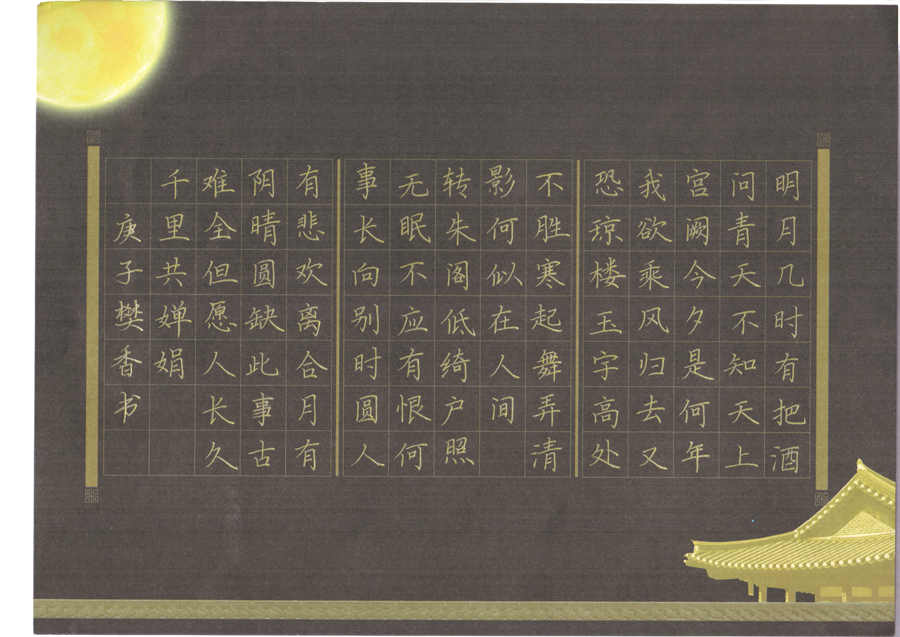 明月几时有把酒
问青天不知天上
宫阙今夕是何年
我欲乘风归去又
恐琼楼玉宇高处
不胜寒起舞弄清
影何似在人间
转朱阁低绮户照
无眠不应有恨何
事长向别时圆人
有悲欢离合月有
阴晴圆缺此事古
难全但愿人长久
千里共婵娟
庚子樊香书